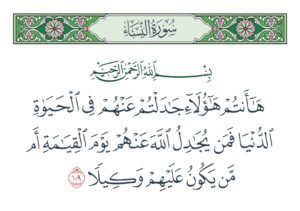 سُورَةُ النِّسَاءِ
بِسْمِ اللَّهِ الرَّحْمَٰنِ الرَّحِيمِ
هَٰٓأَنتُمْ هَٰٓؤُلَآءِ جَٰدَلْتُمْ عَنْهُمْ فِى الْحَيَوٰةِ
الدُّنْيَا فَمَن يُجَٰدِلُ اللَّهَ عَنْهُمْ يَوْمَ الْقِيَٰمَةِ أَم
مَّن يَكُونُ عَلَيْهِمْ وَكِيلًا ١٠٩